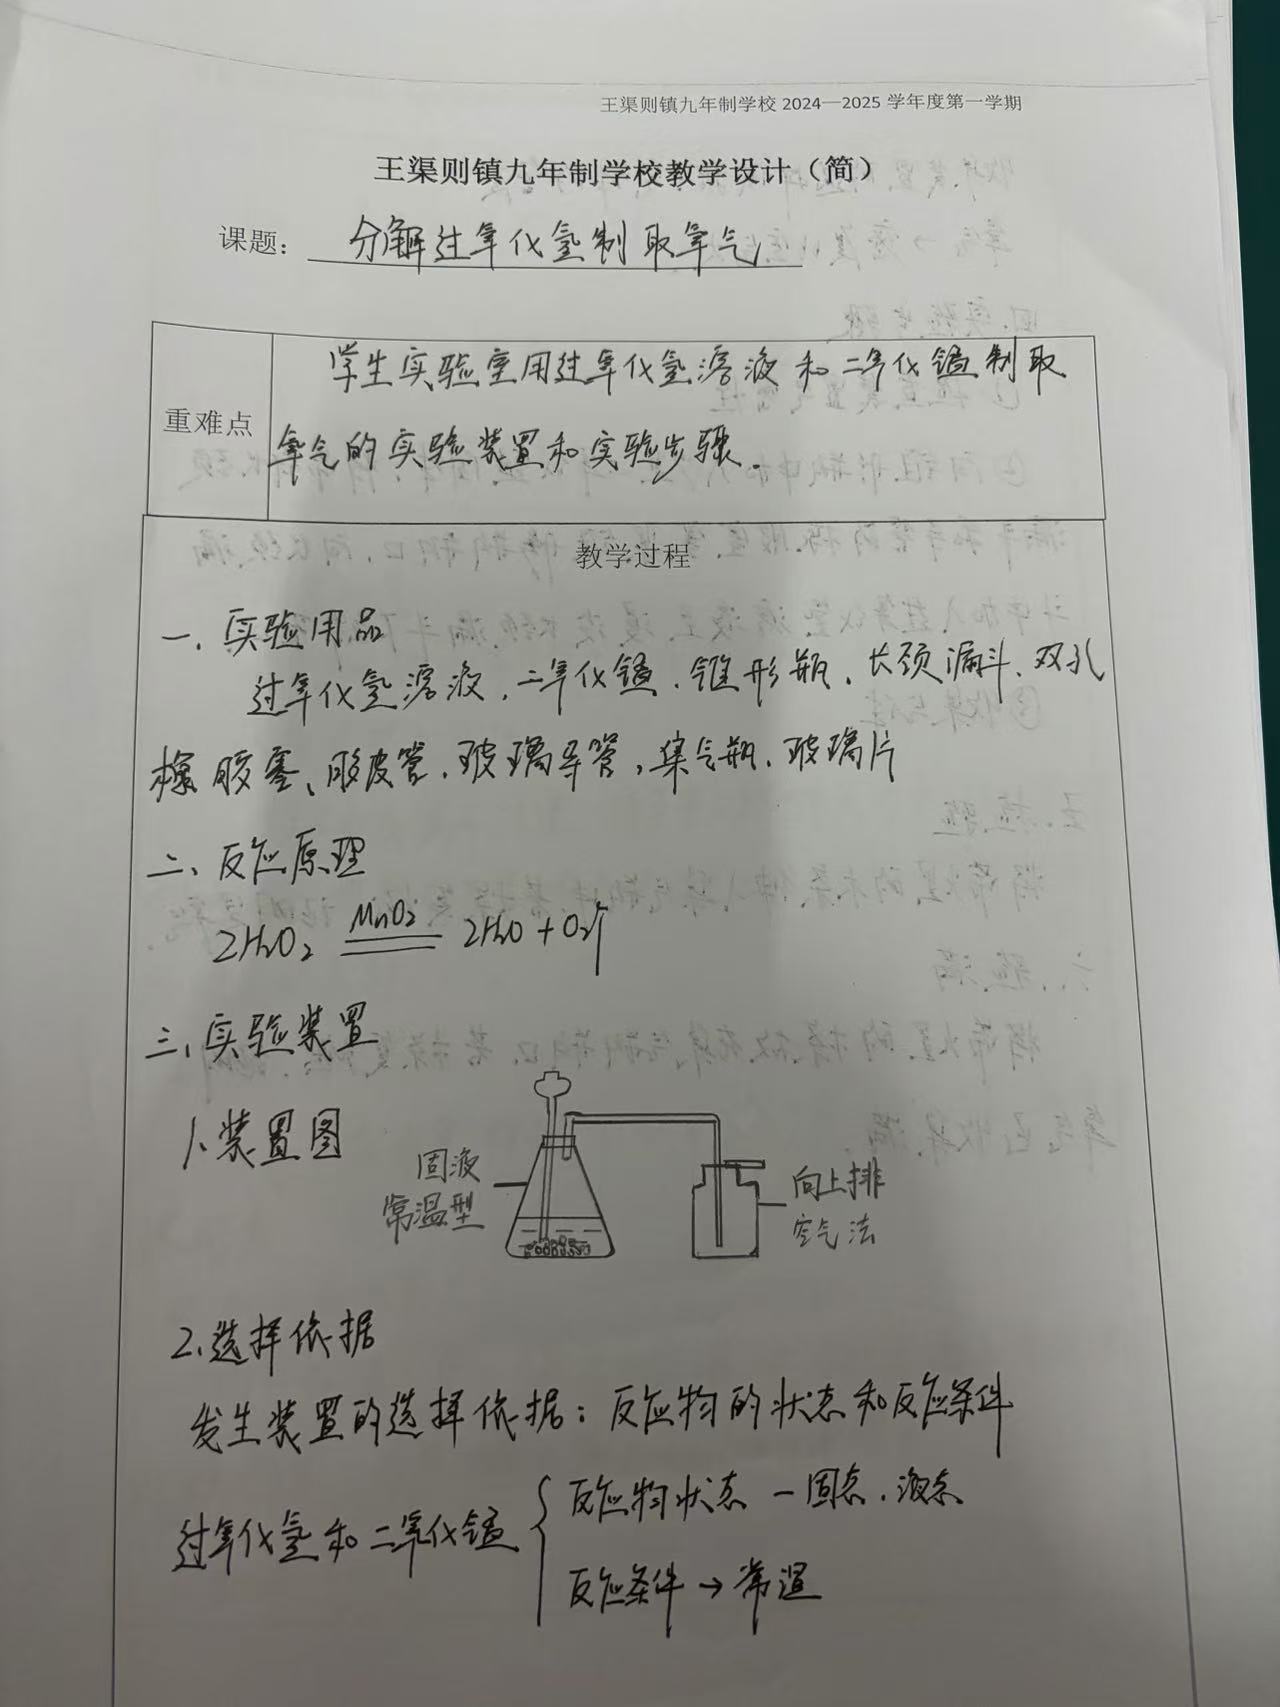 王渠则镇九年制学校 2024—2025 学年度第一学期
王渠则镇九年制学校教学设计（简）
课题： 分解过氧化氢制取氧气
学生实验室用过氧化氢溶液和二氧化锰制取
重难点
氧气的实验装置和实验步骤.
教学过程
一、实验用品
过氧化氢溶液、二氧化锰、锥形瓶、长颈漏斗、双孔
橡胶塞、胶皮管、玻璃导管，集气瓶、玻璃片
二、反应原理
2H₂O₂ MnO₂ 2H₂O + O₂↑
三、实验装置
1、装置图
固液
常温型
向上排
空气法
2、选择依据
发生装置的选择依据：反应物的状态和反应条件
过氧化氢和二氧化锰 { 反应物状态 — 固态、液态
反应条件 → 常温